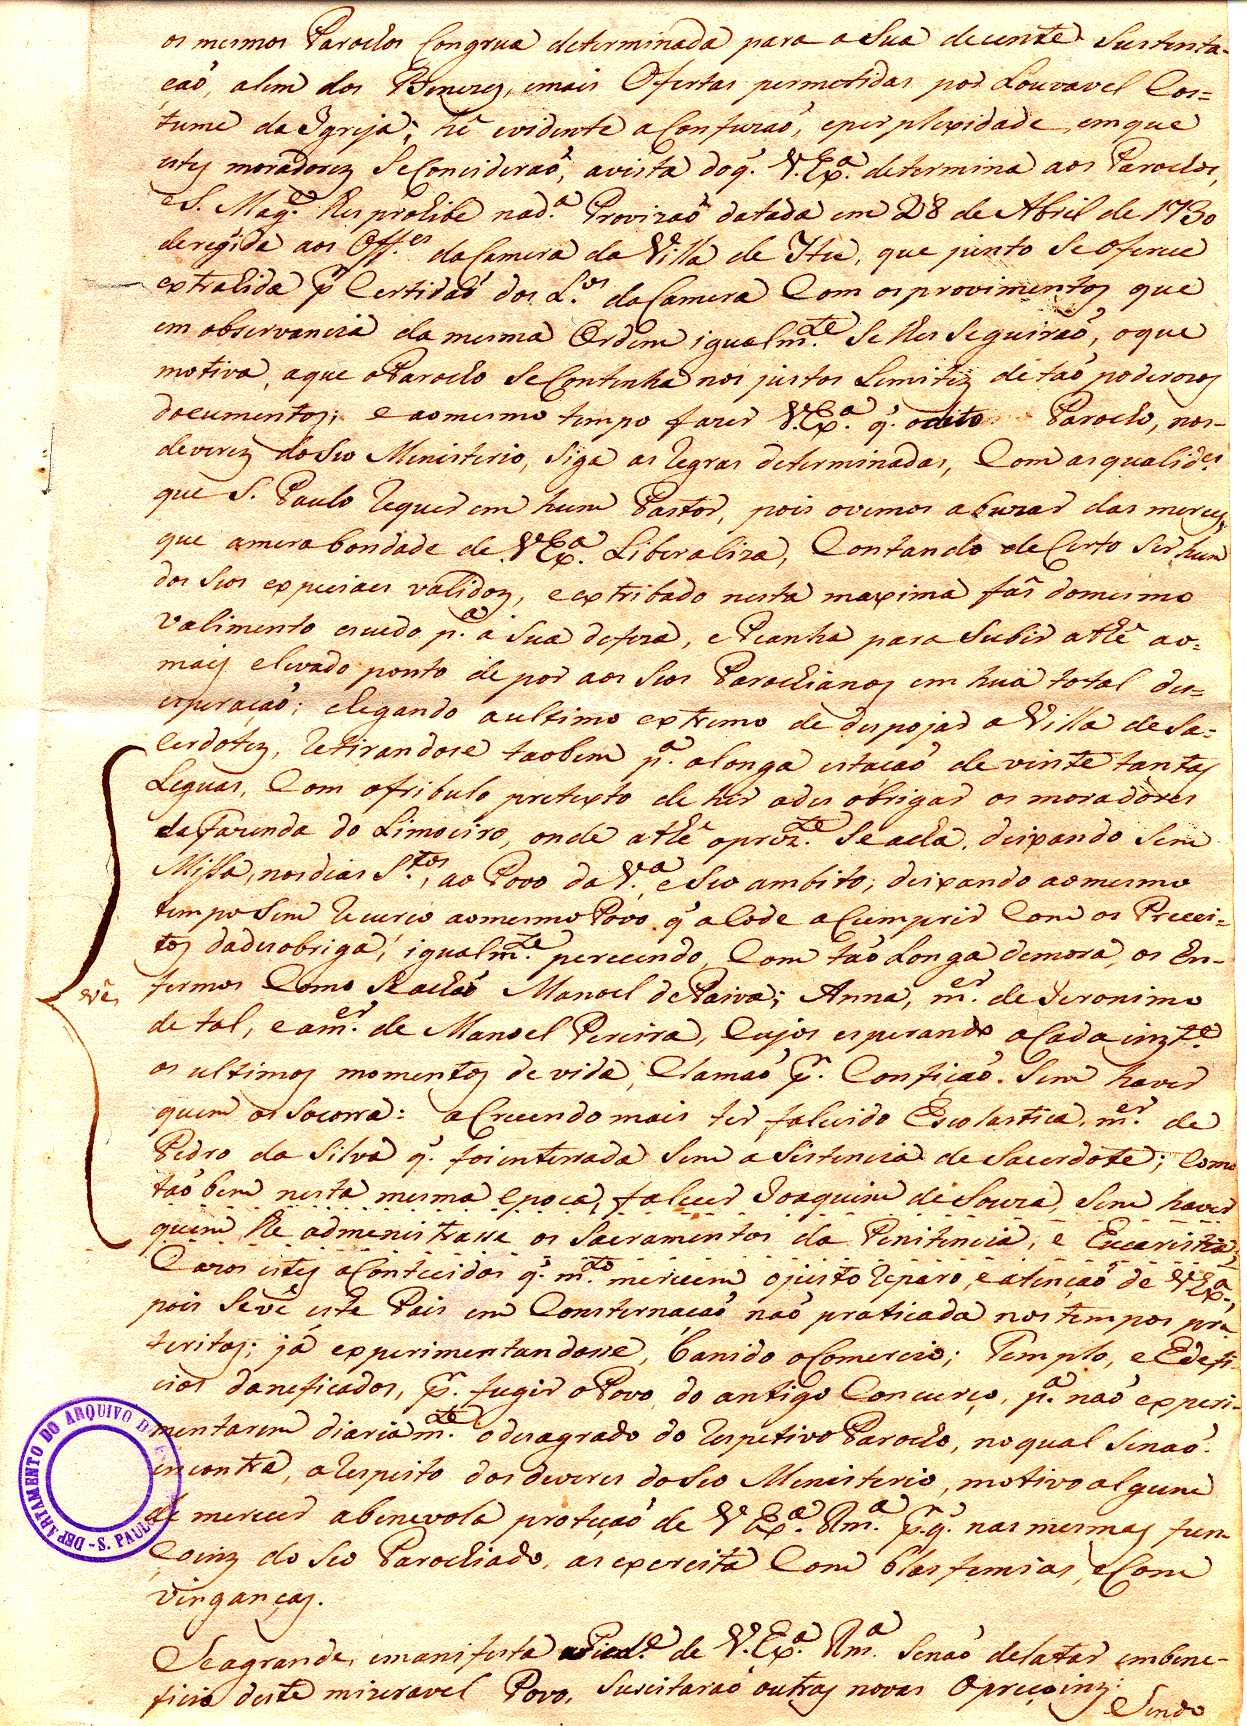 os mesmos Parochos Congrua determinada para a Sua decente Sustenta-
çaõ, alem dos Benezes, emais Ofertas permetidas por Louvavel Cos=
tume da Igreja; hê evidente aConfuzaõ, eperplexidade, emque
estes moradores SeConcideraõ, avista doq.' V. Ex.ª determina aos Parochos,
eS. Mag.e lhes prohibe na d.ª Provizaõ datada em 28 de Abril de 1730
deregida aos Off.es daCamera da Villa de Itu, que junto Se oferece
extrahida p.r Certidaõ dos L.os daCamera Com osprovimentos que
em observancia da mesma Ordem igualm.te Se lhes Seguiraõ, oque
motiva, aque oParocho SeContenha nos justos Limites detaõ poderozos
documentos; e aomesmo tempo fazer V. Ex.ª q.' odito Parocho, nos-
deveres doSeo Ministerio, Siga as regras determinadas, Com asqualid.es
que S. Paulo requer em hum Pastor, pois ovemos abuzar das merces,
que amera bondade de V. Ex.ª Liberaliza, Contando deCerto Ser hum
dos Seos expeciaes validos, e extribado nesta maxima fás domesmo
Valimento escudo p.ª a Sua defeza, e Peanha para Subir athê ao=
mais elevado ponto de por aos Seos Parochianos em huã total des=
esperaçaõ; chegando aultimo extremo de despojar a Villa deSa=
cerdotes, retirandose taobem p.ª alonga estacaõ de vinte tantas
Leguas, Com ofribulo pretexto de hir ades obrigar os moradores
da Fazenda do Limoeiro, onde athê oprez.te Se acha, deixando Sem
Missa, nos dias S.tos, ao Povo da V.ª e Seo ambito; deixando aomesmo
tempo Sem recurço aomesmo Povo, q.' aCode aCumprir Com os Precei-
tos dadesobriga; igualm.te perecendo, Com taõ Longa demora, os En-
fermos Como Manoel dePaiva; Anna, m.er de Jeronimo
de tal, e am.er de Manoel Pereira, Cujos esperando aCada inst.e
os ultimos momentos de vida, Clamaõ p.r Confiçaõ. Sem haver
quem os Socorra: aCrecendo mais ter falecido Escolastica, m.er de
Pedro da Silva q.' foi enterrada Sem aSistencia de Sacerdote; Como
taõ bem nesta mesma epoca, falecer Joaquim deSouza, Sem haver
quem lhe admenistrasse os Sacramentos da Penitencia, e Eucaristia,
Cazos estes aContecidos q.' m.to merecem ojusto reparo, e atençaõ de V. Ex.ª,
pois Sevê este Pais em Consternaçaõ naõ praticada nos tempos pre
teritos; já experimentandosse, banido oComercio; Templo, e Edefi-
cios daneficados, p.r fugir oPovo do antigo Concurço, p.ª naõ experi-
mentarem diariam.te odesagrado do respetivo Parocho, noqual Senaõ
encontra, arespeito dos deveres do Seo Menisterio, motivo algum
de merecer abenevola proteçaõ de V. Ex.ª Rm.ª p.r q.' nas mesmas fun
coins do Seo Parochiado, as exercita Com blasfemias, eCom
vinganças.
Seagrande, emanifesta Pied.e de V. Ex.ª Rm.ª Senaõ delatar embene-
ficio deste mizeravel Povo, Suscitaraõ outras novas Opreçoinz:
Sendo
Vê
DEPARTAMENTO DO ARQUIVO DO
- S. PAULO